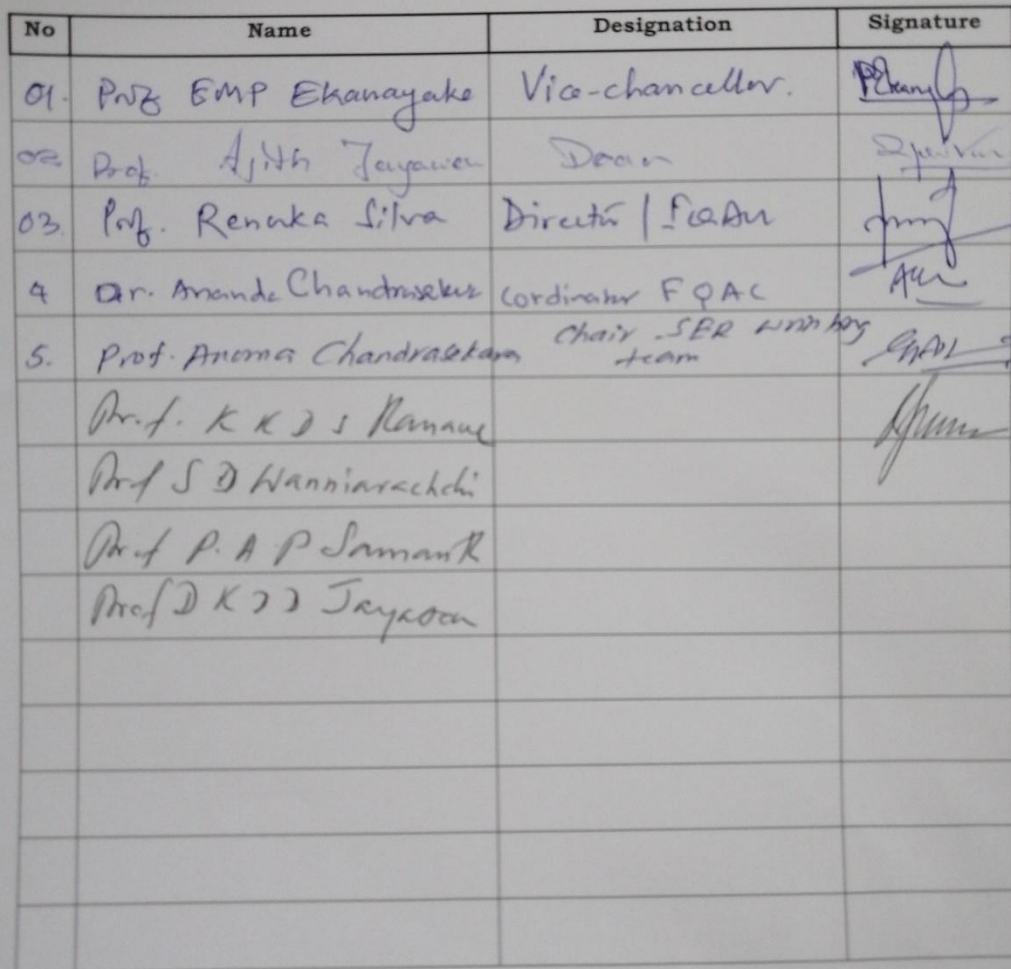 No Name Designation Signature
01. Prof EMP Ekanayake Vice-chancellor.
02. Prof. Ajith Dean
03. Prof. Renuka Silva Director /
4 Dr. Ananda Chandrasekara Cordinator FQAC
5. Prof. Anoma Chandrasekara Chair SER writing
team
Prof. K K D S Ranawe
Prof S D Wanniarachchi
Prof P. A P Samant
Prof D K D D